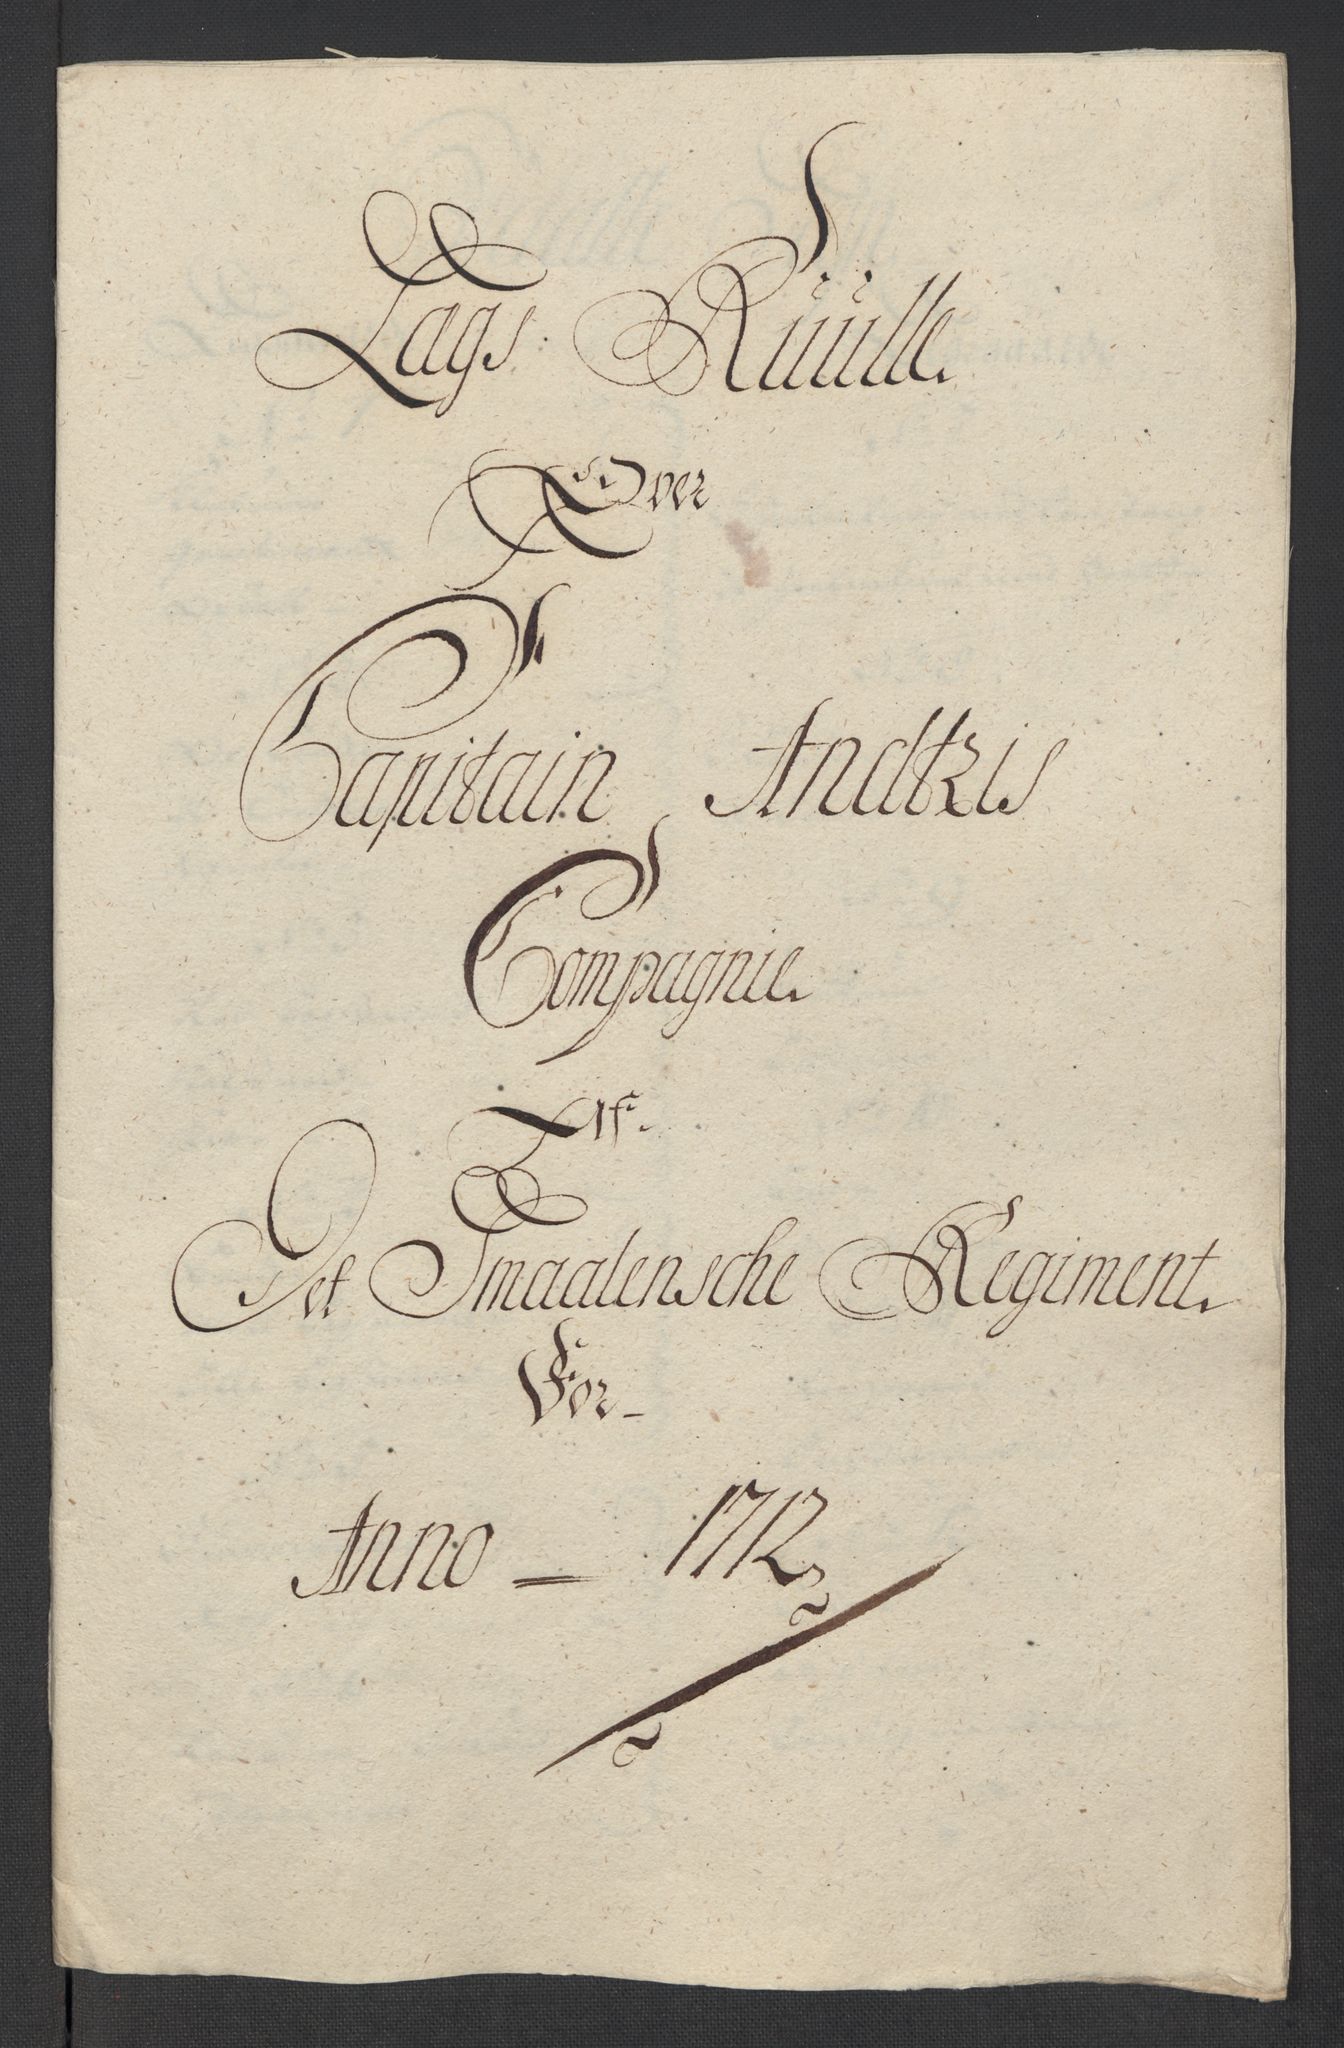 Lags: Rüülle.
Over
Capitain Andtzis
Compagnie.
Af.
Det Smaalensche Regiment.
For
Anno = 1712